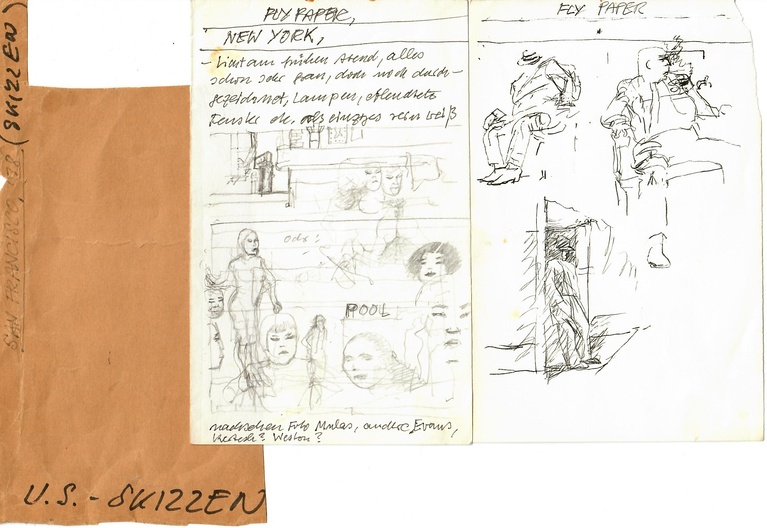 SAN FRANCISCO, 78 (SKIZZEN)
U.S.-SKIZZEN
FLY PAPER,
NEW YORK,
- Licht am frühen Abend, alles
schon sehr grau, doch noch durch-
gezeichnet, Lampen,
Fenster etc. als einziges rein weiß
oder:
POOL
nachsehen Foto Mulas, andere Evans,
Kertesh? Weston?
FLY PAPER